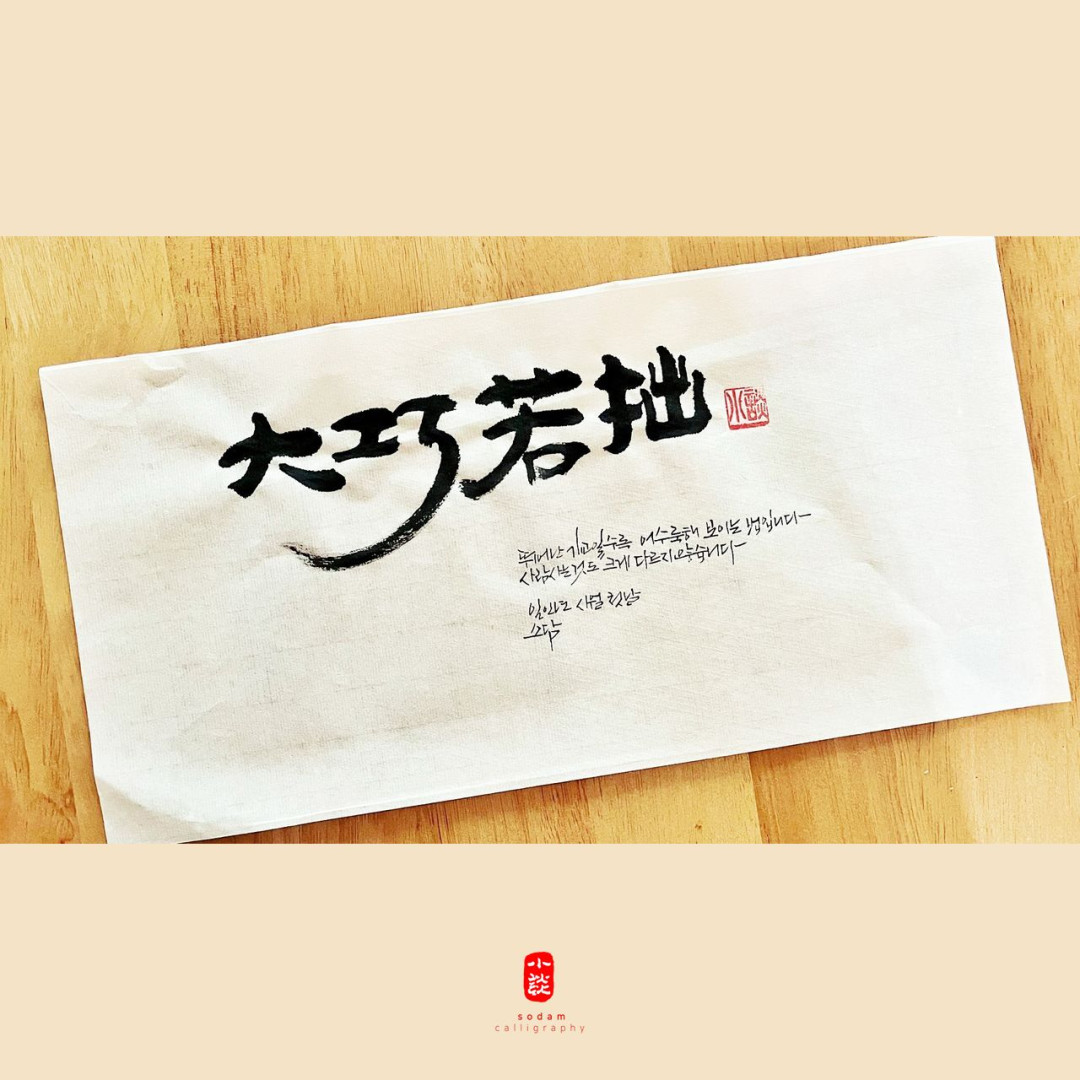 大巧若拙
小談
뛰어난 기교일수록 어수룩해 보이는 법입니다
사람사는것도 크게 다르지않습니다
시월 첫날
소담
小談
sodam
calligraphy